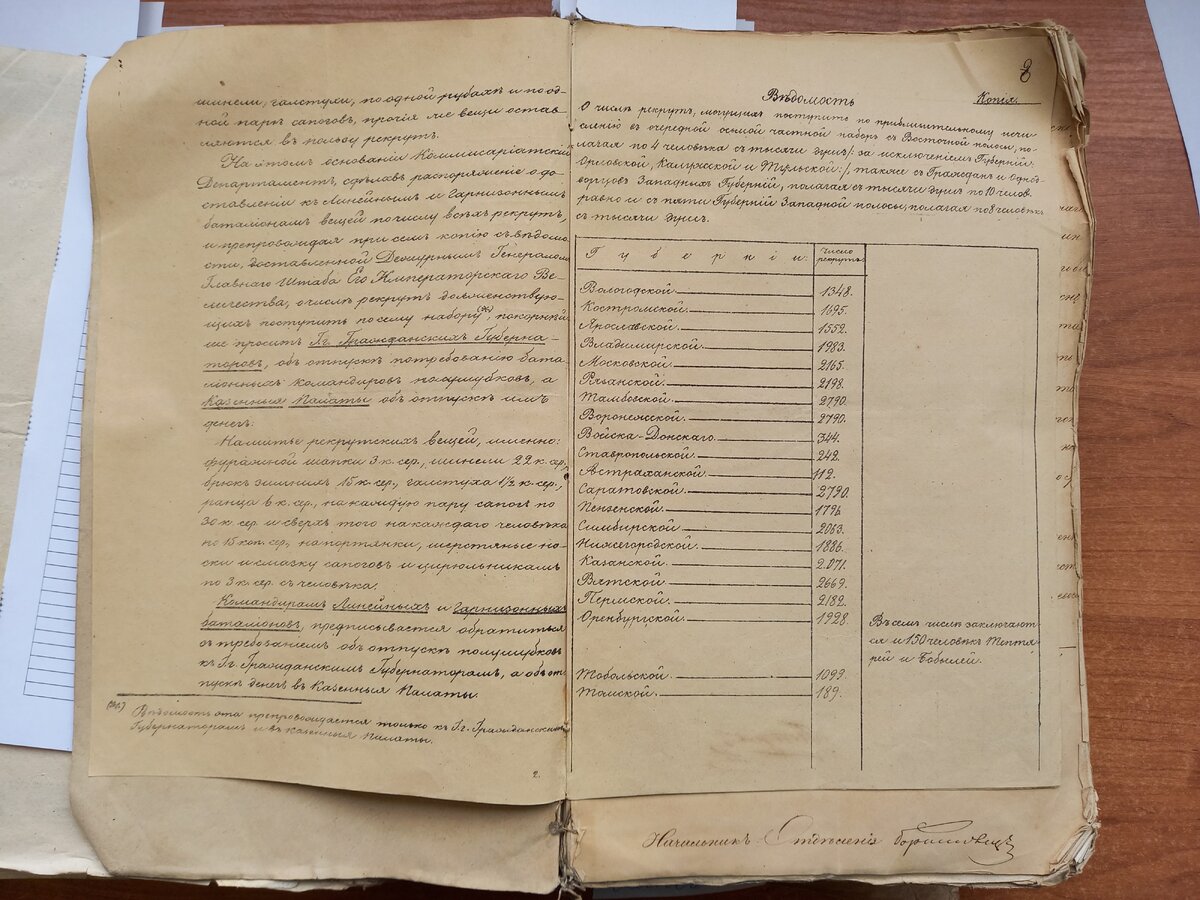 шинели, галстухи, по одной рубахѣ и по од-
ной парѣ сапоговъ, прочія же вещи остав-
ляются въ пользу рекрутъ.
На этомъ основаніи Коммисаріатскій
Департаментъ, сдѣлавъ распоряженіе о до-
ставленіи къ Линейнымъ и Гарнизоннымъ
баталіонамъ вещей по числу всѣхъ рекрутъ,
и препровождая при семъ копію съ вѣдомо-
сти, доставленной Дежурнымъ Генераломъ
Главнаго Штаба Его Императорскаго Ве-
личества, о числѣ рекрутъ долженствую-
щихъ поступить по сему набору (ж), покорнѣй-
ше проситъ Гг. Гражданскихъ Губерна-
торовъ, объ отпускѣ по требованію бата-
ліонныхъ командировъ полушубковъ, а
Казенныя Палаты объ отпускѣ имъ
денегъ:
На шитье рекрутскихъ вещей, именно:
фуражной шапки 3 к. сер., шинели 22 к. сер.,
брюкъ зимнихъ 15 к. сер., галстуха 1/2 к. сер.,
ранца 6 к. сер., на каждую пару сапогъ по
30 к. сер. и сверхъ того на каждаго человѣка
по 15 коп. сер., на портянки, шерстяные но-
ски и смазку сапоговъ и цирюльникамъ
по 3 к. сер. съ человѣка.
Командирамъ Линейныхъ и Гарнизонныхъ
баталіоновъ, предписывается обратиться
съ требованіемъ объ отпускѣ полушубковъ
къ Гг. Гражданскимъ Губернаторамъ, а объ от-
пускѣ денегъ въ Казенныя Палаты.
(ж) Вѣдомость эта препровождается только къ Гг. Гражданскимъ
Губернаторамъ и въ Казенныя Палаты.
2.
Вѣдомость Копія.
О числѣ рекрутъ, могущихъ поступить по приблизительному исчи-
сленію въ очередной осьмой частной наборъ съ Восточной полосы, по-
лагая по 4 человѣка съ тысячи душъ/: за исключеніемъ Губерній:
Орловской, Калужской и Тульской:/, также съ Гражданъ и Одно-
дворцовъ Западныхъ Губерній, полагая съ тысячи душъ по 10 челов.
равно и съ пяти Губерній Западной полосы, полагая по 8 человѣкъ
съ тысячи душъ.
Губерніи. Число рекрутъ.
Вологодской. 1348.
Костромской. 1695.
Ярославской. 1552.
Владимирской. 1983.
Московской. 2165.
Рязанской. 2198.
Тамбовской. 2790.
Воронежской. 2790.
Войска-Донскаго. 344.
Ставропольской. 242.
Астраханской. 112.
Саратовской. 2790.
Пензенской. 1796.
Симбирской. 2063.
Нижегородской. 1886.
Казанской. 2.071.
Вятской. 2669.
Пермской. 2182.
Оренбургской. 1928. Въ семъ числѣ заключают-
ся и 150 человѣкъ Тептя-
рей и Бобылей.
Тобольской. 1099.
Томской. 189.
Начальникъ Отдѣленія